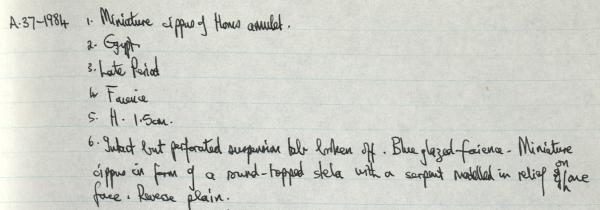 A.37-1984 1. Miniature cippus of Horus amulet.
2. Egypt
3. Late Period
4. Faience
5. H. 1.5cm.
6. Intact but perforated suspension tab broken off. Blue glazed-faience. Miniature
cippus in form of a round-topped stela with a serpent modelled in relief on one
face. Reverse plain.